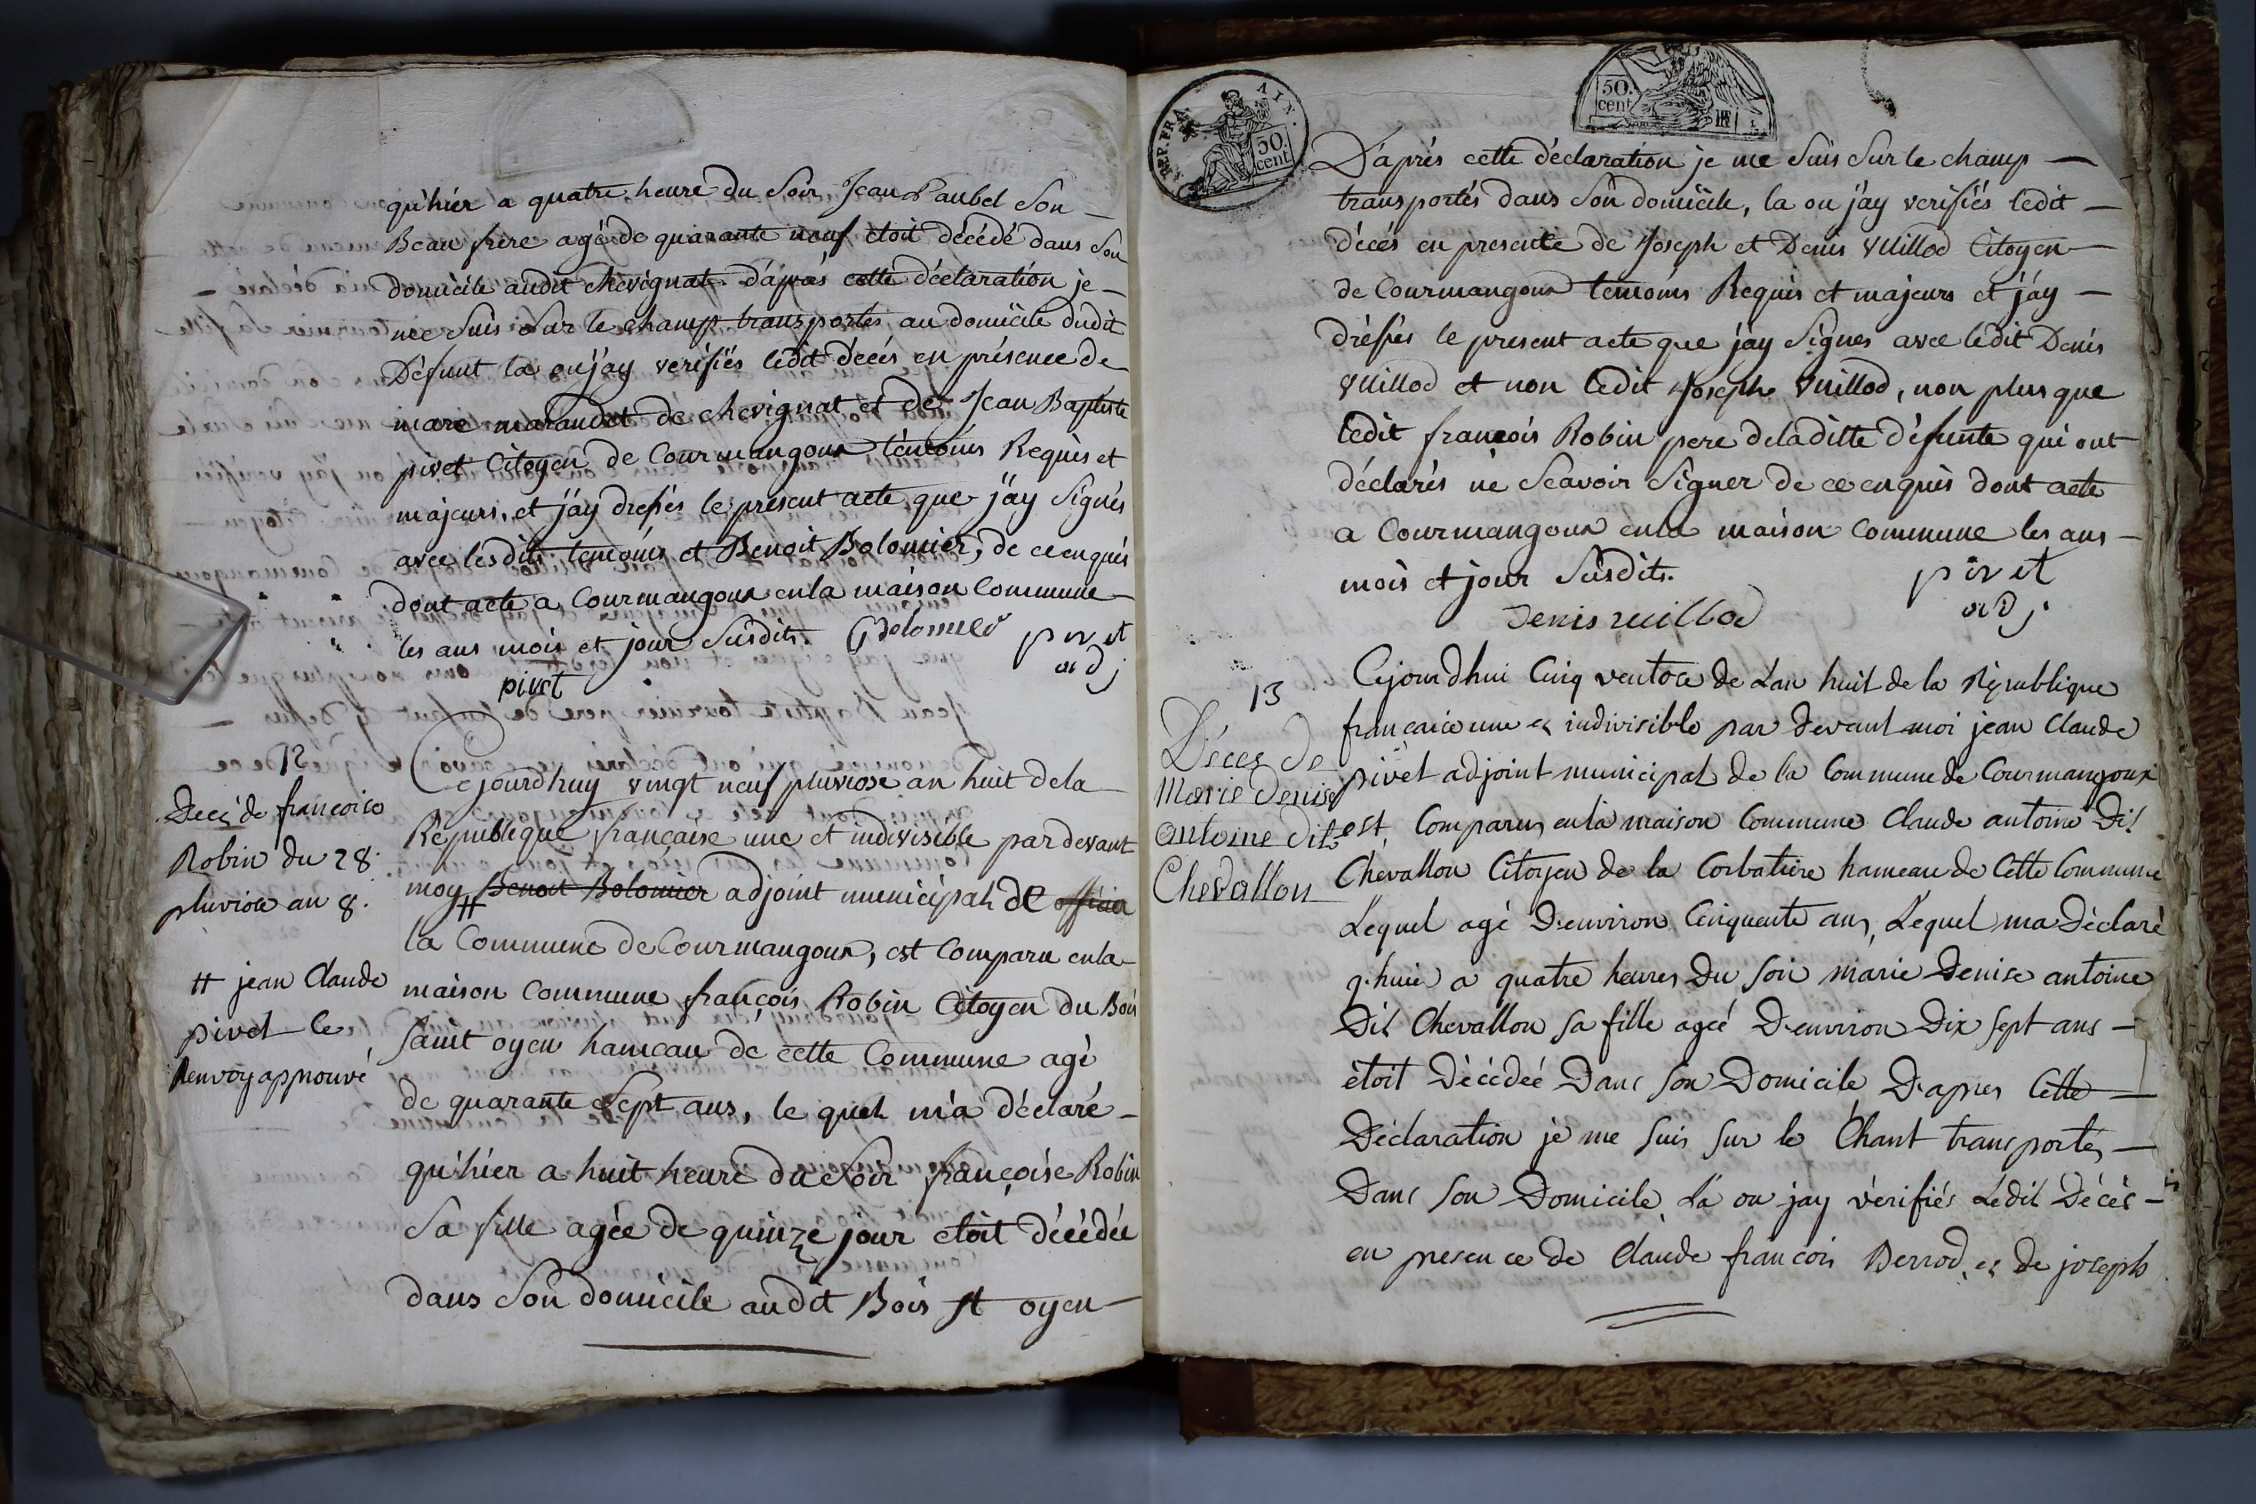 qu'hier a quatre heure du Soir Jean Paubel Son
Beau frere agé de quarante neuf étoit décédé dans Son
domicile audit chevignat. D'après cette déclaration je
me Suis Sur le champ transportés au domicile dudit
Défunt la ou j'ay verifiés ledit décés en présence de
marc maraudet de chevignat et de Jean Baptiste
pivet Citoyen de Courmangoux témoins Requis et
majeurs, et j'ay dressés le present acte que j'ay Signés
avec lesdits temoins et Benoit Bolomier, de ce enquis
dont acte a Courmangoux en la maison Commune
les ans mois et jour Susdits. Bolomier pivet
adj
pivet
12
Decés de francoise
Robin du 28
pluviose an 8.
Cejourdhuy vingt neuf pluviose an huit de la
Republique française une et indivisible par devant
moy # Benoit Bolomier adjoint municipal de officier
la Commune de Courmangoux, est Comparu en la
maison Commune françois Robin Citoyen du Bois
Saint oyen hameau de cette Commune agé
de quarante Sept ans, le quel m'a déclaré
qu'hier a huit heure du Soir françoise Robin
Sa fille agée de quinze jour etoit décédée
dans Son domicile audit Bois St oyen
# jean Claude
pivet le
Renvoy approuvé
REP. FRA. AIN.
50.
cent
50.
cent
D'aprés cette déclaration je me Suis Sur le champ
transportés dans Son domicile, la ou j'ay verifiés ledit
décés en presence de Joseph et Denis Vuillod Citoyen
de Courmangoux temoins Requis et majeurs et j'ay
dréssés le present acte que j'ay Signes avec ledit Denis
Vuillod et non ledit Joseph Vuillod, non plus que
ledit françois Robin pere de laditte défunte qui ont
déclarés ne Scavoir Signer de ce enquis dont acte
a Courmangoux en la maison Commune les ans
mois et jour Susdits. pivet
Denis vuillod adj.
13
Déces de
Marie Denise
antoine dit
Chevallon
Cejourdhui Cinq ventose de L'an huit de la République
francaise une et indivisible par devant moi jean Claude
pivet adjoint municipal de la Commune de Courmangoux
est Comparus en la maison Commune Claude antoine Dit
Chevallon Citoyen de la Corbatiere hameau de Cette Commune
Lequel agé D'environ Cinquante ans, Lequel ma Déclaré
q'huier a quatre heures Du Soir marie Denise antoine
Dit Chevallon Sa fille agéé D'environ Dix Sept ans
étoit Décédéé Dans Son Domicile D'apres Cette
Déclaration je me Suis Sur le Chant transportés
Dans Son Domicile La ou jay vérifiés Ledit Décès
en presence de Claude francois Berrod et de joseph